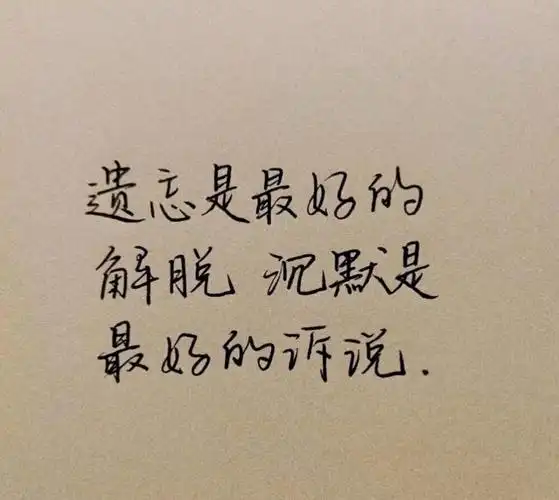 遗忘是最好的
解脱 沉默是
最好的诉说.